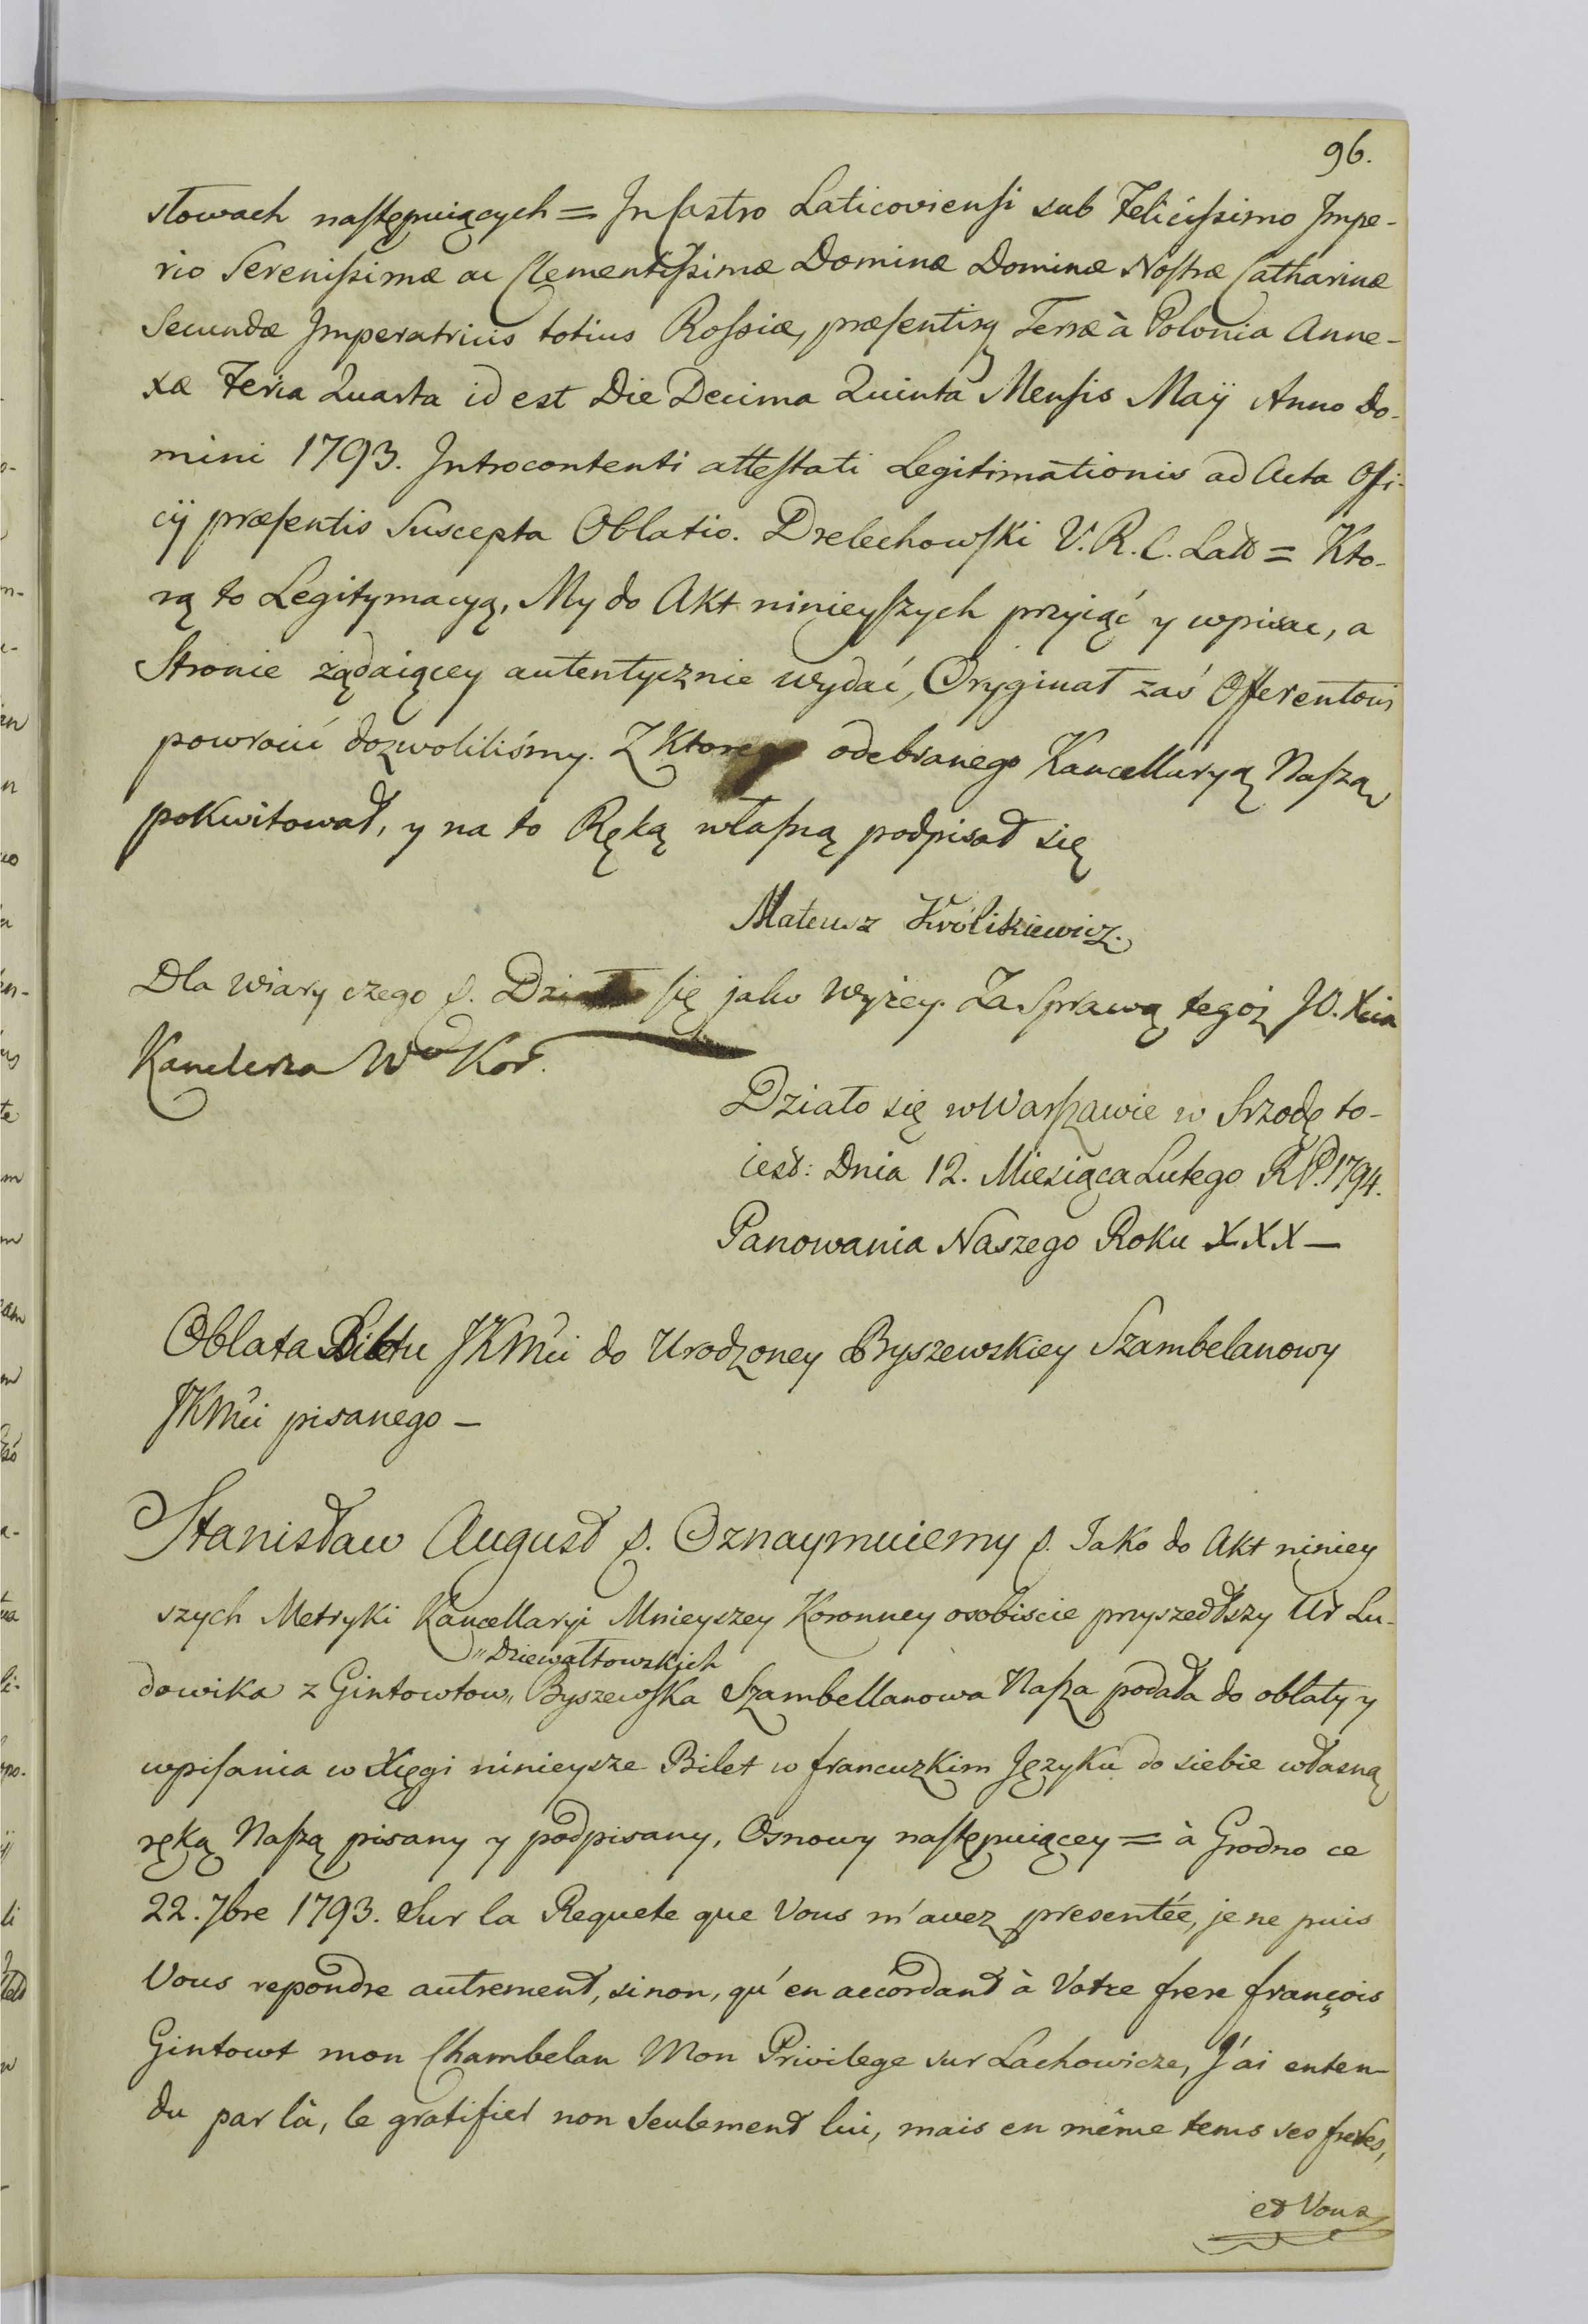 96.
słowach następuiących = In Castro Laticoviensi sub Felicissimo Impe-
rio Serenissimæ ac Clementissimæ Dominæ Dominæ Nostræ Catharinæ
Secundæ Imperatricis totius Rossiæ, præsentisq Terræ à Polonia Anne-
xæ Feria Quarta id est Die Decima Quinta Mensis Maÿ Anno Do-
mini 1793. Introcontenti attestati Legitimationis ad Acta Offi-
cÿ præsentis Suscepta Oblatio. Drelechowski V. R. C. Latt = Kto-
rą to Legitymacyą, My do Akt ninieyszych przyiąć y wpisac, a
Stronie żądaiącey autentycznie wydać, Oryginał zaś Offerentowi
powrocić dozwoliliśmy. Z Ktorego odebranego Kancellaryą Naszą
pokwitował, y na to Ręką własną podpisał się
Mateusz Królikiewicz.
Dla wiary czego p. Działo się jako wyżey. Za Sprawą tegoż JO. Xcia
Kanclerza Wo Kor.
Działo się w Warszawie w Srzodę to-
iest: Dnia 12. Miesiąca Lutego RP. 1794.
Panowania Naszego Roku XXX —
Oblata Biletu JKMci do Urodzoney Byszewskiey Szambelanowy
JKMci pisanego —
Stanisław August p. Oznaymuiemy p. Jako do Akt niniey
szych Metryki Kancellaryi Mnieyszey Koronney osobiscie przyszedłszy Ur Lu-
"Dziewałtowskich
dowika z Gintowtow" Byszewska Szambellanowa Nasza podała do oblaty y
wpisania w Xięgi ninieysze Bilet w francuzkim Języku do siebie własną
ręką Naszą pisany y podpisany, Osnowy następuiącey = à Grodno ce
22. 7bre 1793. Sur la Requete que Vous m'avez presentée, je ne puis
Vous repondre autrement, sinon, qu'en accordant à Votre frere françois
Gintowt mon Chambelan Mon Privilege sur Lachowicze, J'ai enten-
du par là, le gratifier non seulement lui, mais en même tems ses freres,
et Vous